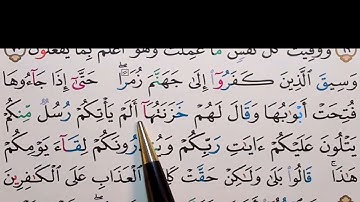 ووفيت كل نفس ما عملت وهو أعلم بما يفعلون
وَسِيقَ الَّذِينَ كَفَرُوٓاْ إِلَىٰ جَهَنَّمَ زُمَرًا ۖ حَتَّىٰٓ إِذَا جَآءُوهَا
فُتِحَتْ أَبْوَٰبُهَا وَقَالَ لَهُمْ خَزَنَتُهَآ أَلَمْ يَأْتِكُمْ رُسُلٌ مِّنكُمْ
يَتْلُونَ عَلَيْكُمْ ءَايَٰتِ رَبِّكُمْ وَيُنذِرُونَكُمْ لِقَآءَ يَوْمِكُمْ
هَٰذَا ۚ قَالُواْ بَلَىٰ وَلَٰكِنْ حَقَّتْ كَلِمَةُ الْعَذَابِ عَلَى الْكَٰفِرِينَ